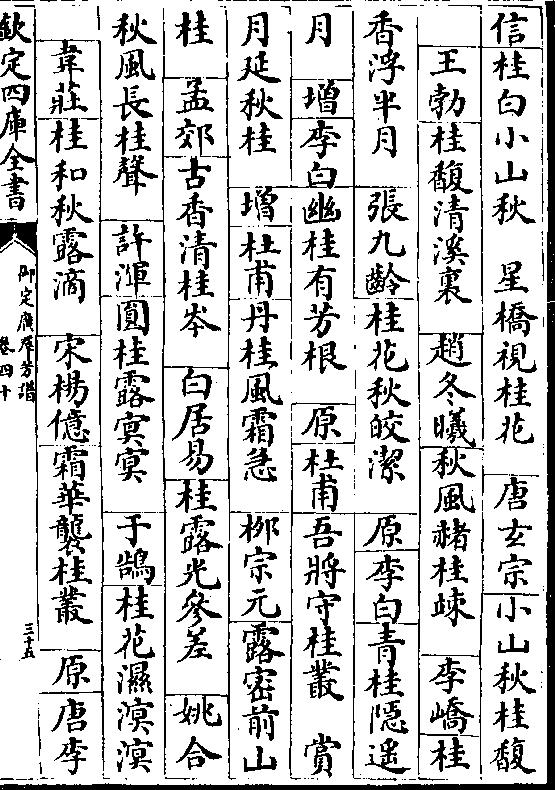 信桂白小山秋　星橋視桂花　唐玄宗小山秋桂馥
王勃桂馥清溪裏　趙冬曦秋風赭桂竦　李嶠桂
香浮半月　張九齡桂花秋皎潔　原李白青桂隠遥
月　增李白幽桂有芳根　原杜甫吾將守桂叢　賞
月延秋桂　增杜甫丹桂風霜急　栁宗元露密前山
桂　孟郊古香清桂岑　白居易桂露光參差　姚合
秋風長桂聲　許渾圓桂露㝠㝠　于鵠桂花濕溟溟
韋莊桂和秋露滴　宋楊億霜華襲桂叢　原唐李
欽定四庫全書
御定廣羣芳譜
卷四十
三十五